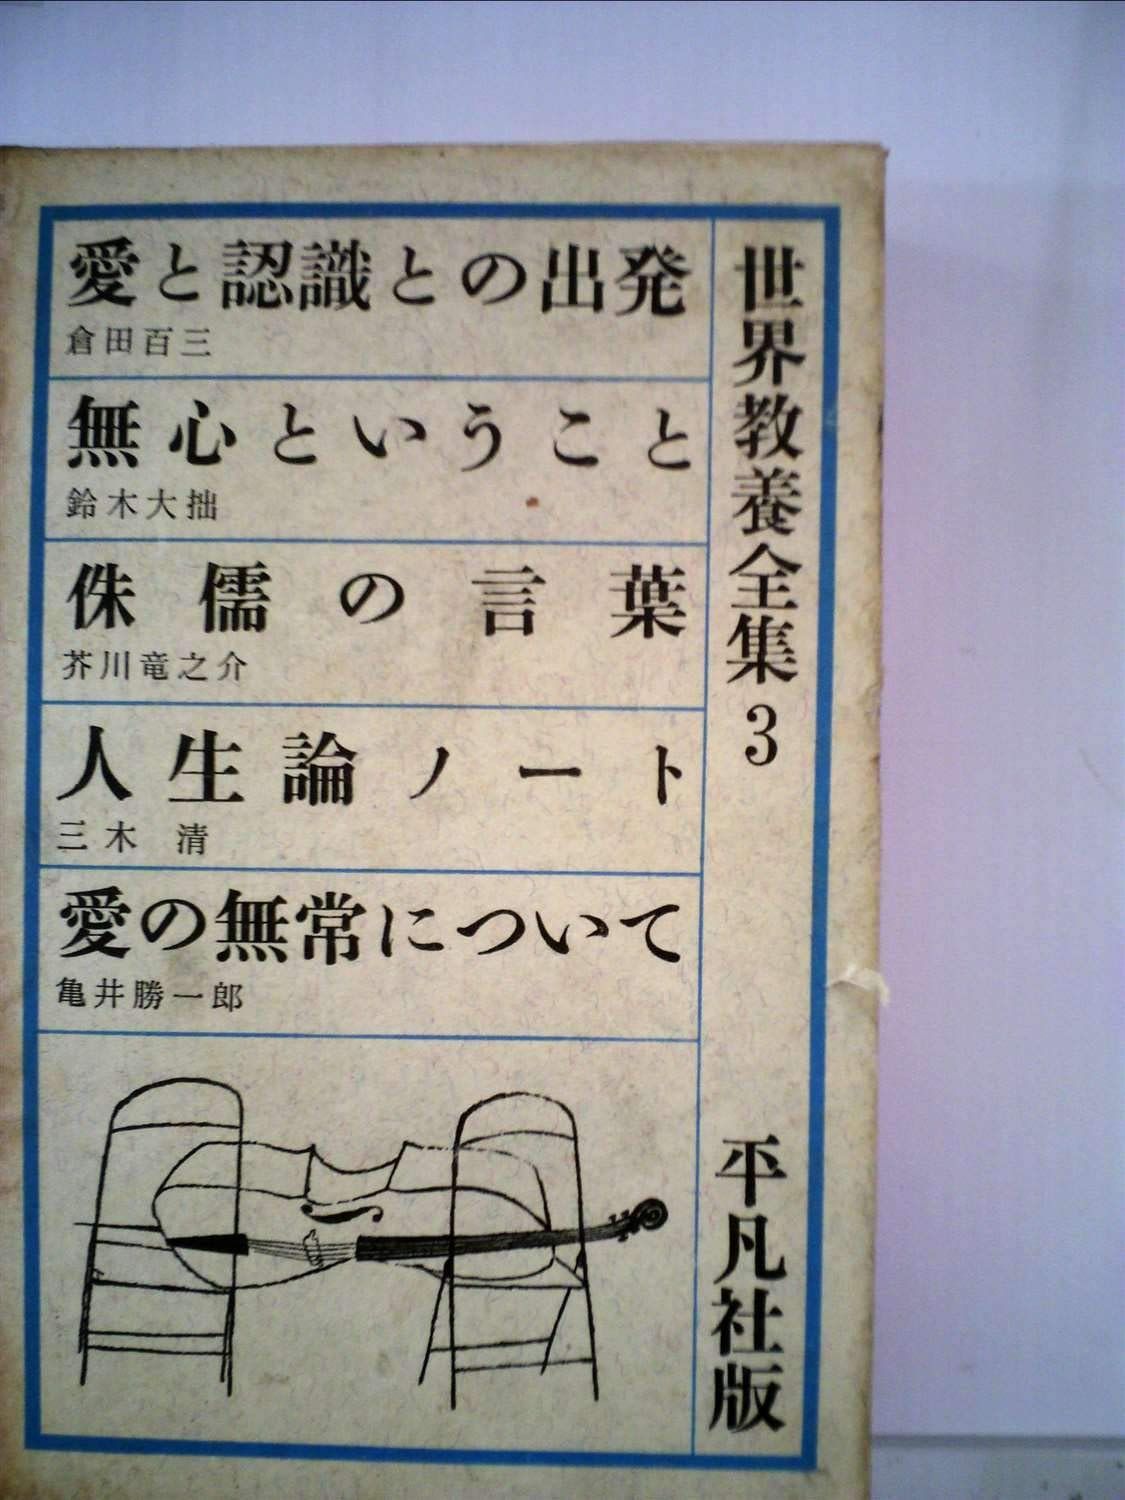 世界教養全集 3
愛と認識との出発
倉田百三
無心ということ
鈴木大拙
侏儒の言葉
芥川竜之介
人生論ノート
三木 清
愛の無常について
亀井勝一郎
平凡社版